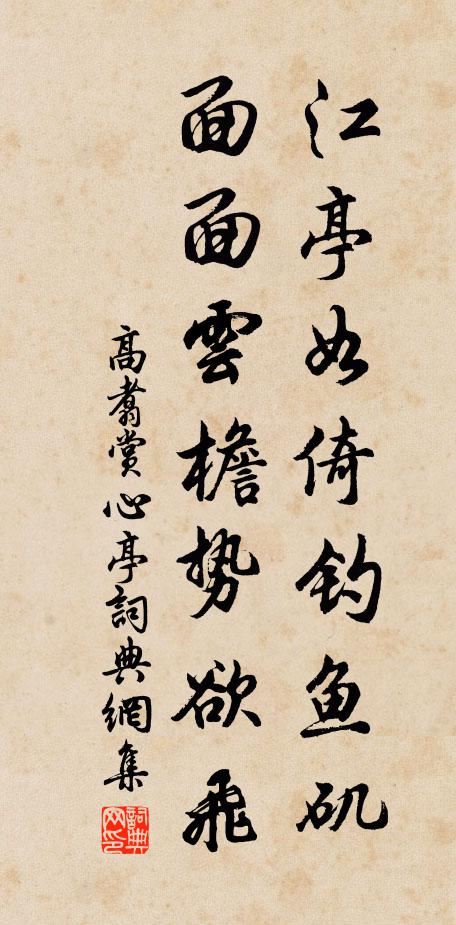 江亭如倚钓鱼矶
面面雲檐势欲飛
高翥赏心亭詞典網集
詞典网印